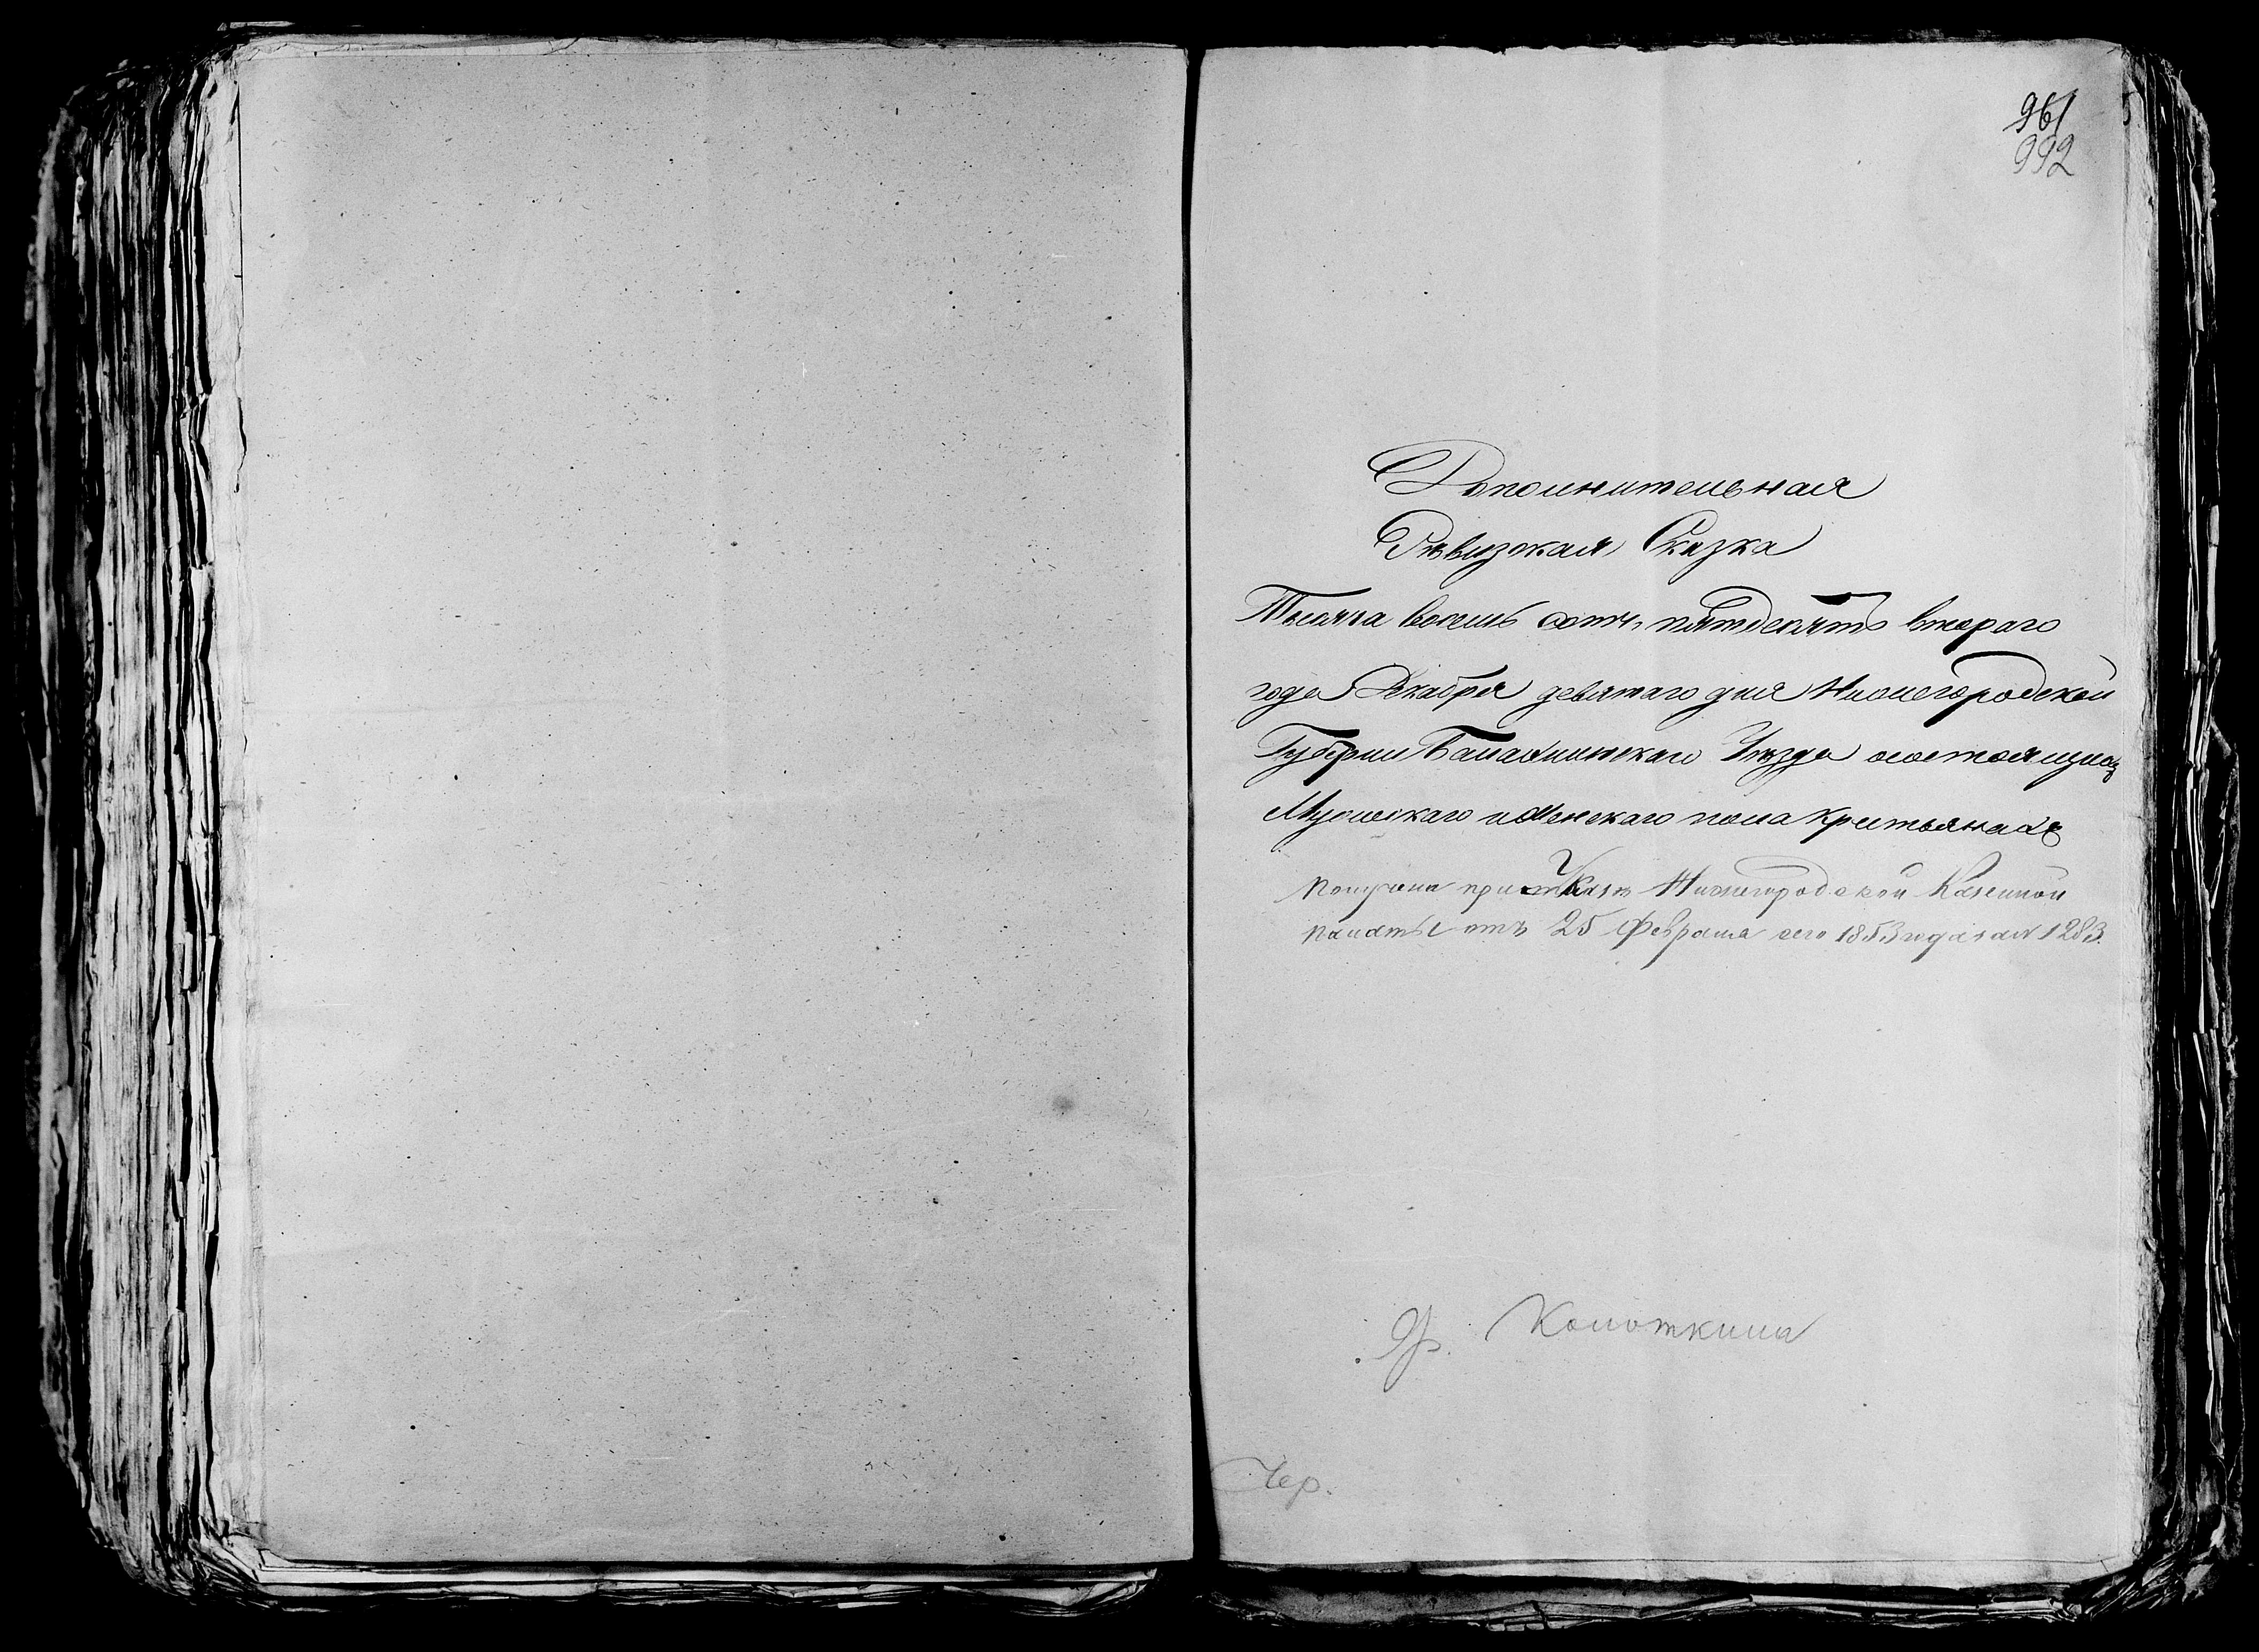 961
992
Дополнительная
Ревизская Сказка
Тысяча восемь сотъ пятдесятъ втораго
года Декабря девятаго дня Нижегородской
Губернии Балахнинскаго Уезда о состоящихъ
Мужескаго и Женскаго пола крестьянахъ
получена при Указѣ Нижегородской Казенной
палаты отъ 25 Февраля сего 1853 года за № 1283.
Колоткина
Чер.